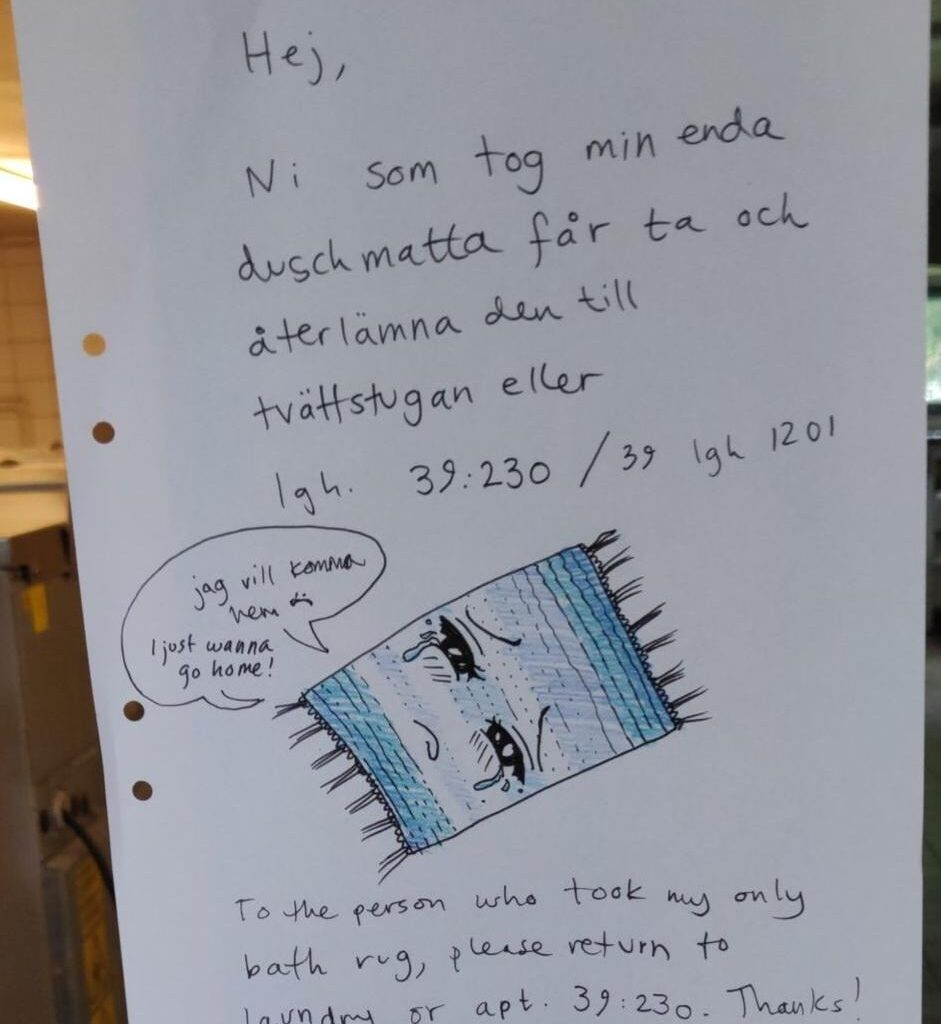 Hej,
Ni som tog min enda
duschmatta får ta och
återlämna den till
tvättstugan eller
lgh. 39:230 / 39 lgh 1201
jag vill komma
hem :(
I just wanna
go home!
To the person who took my only
bath rug, please return to
laundry or apt. 39:230. Thanks!